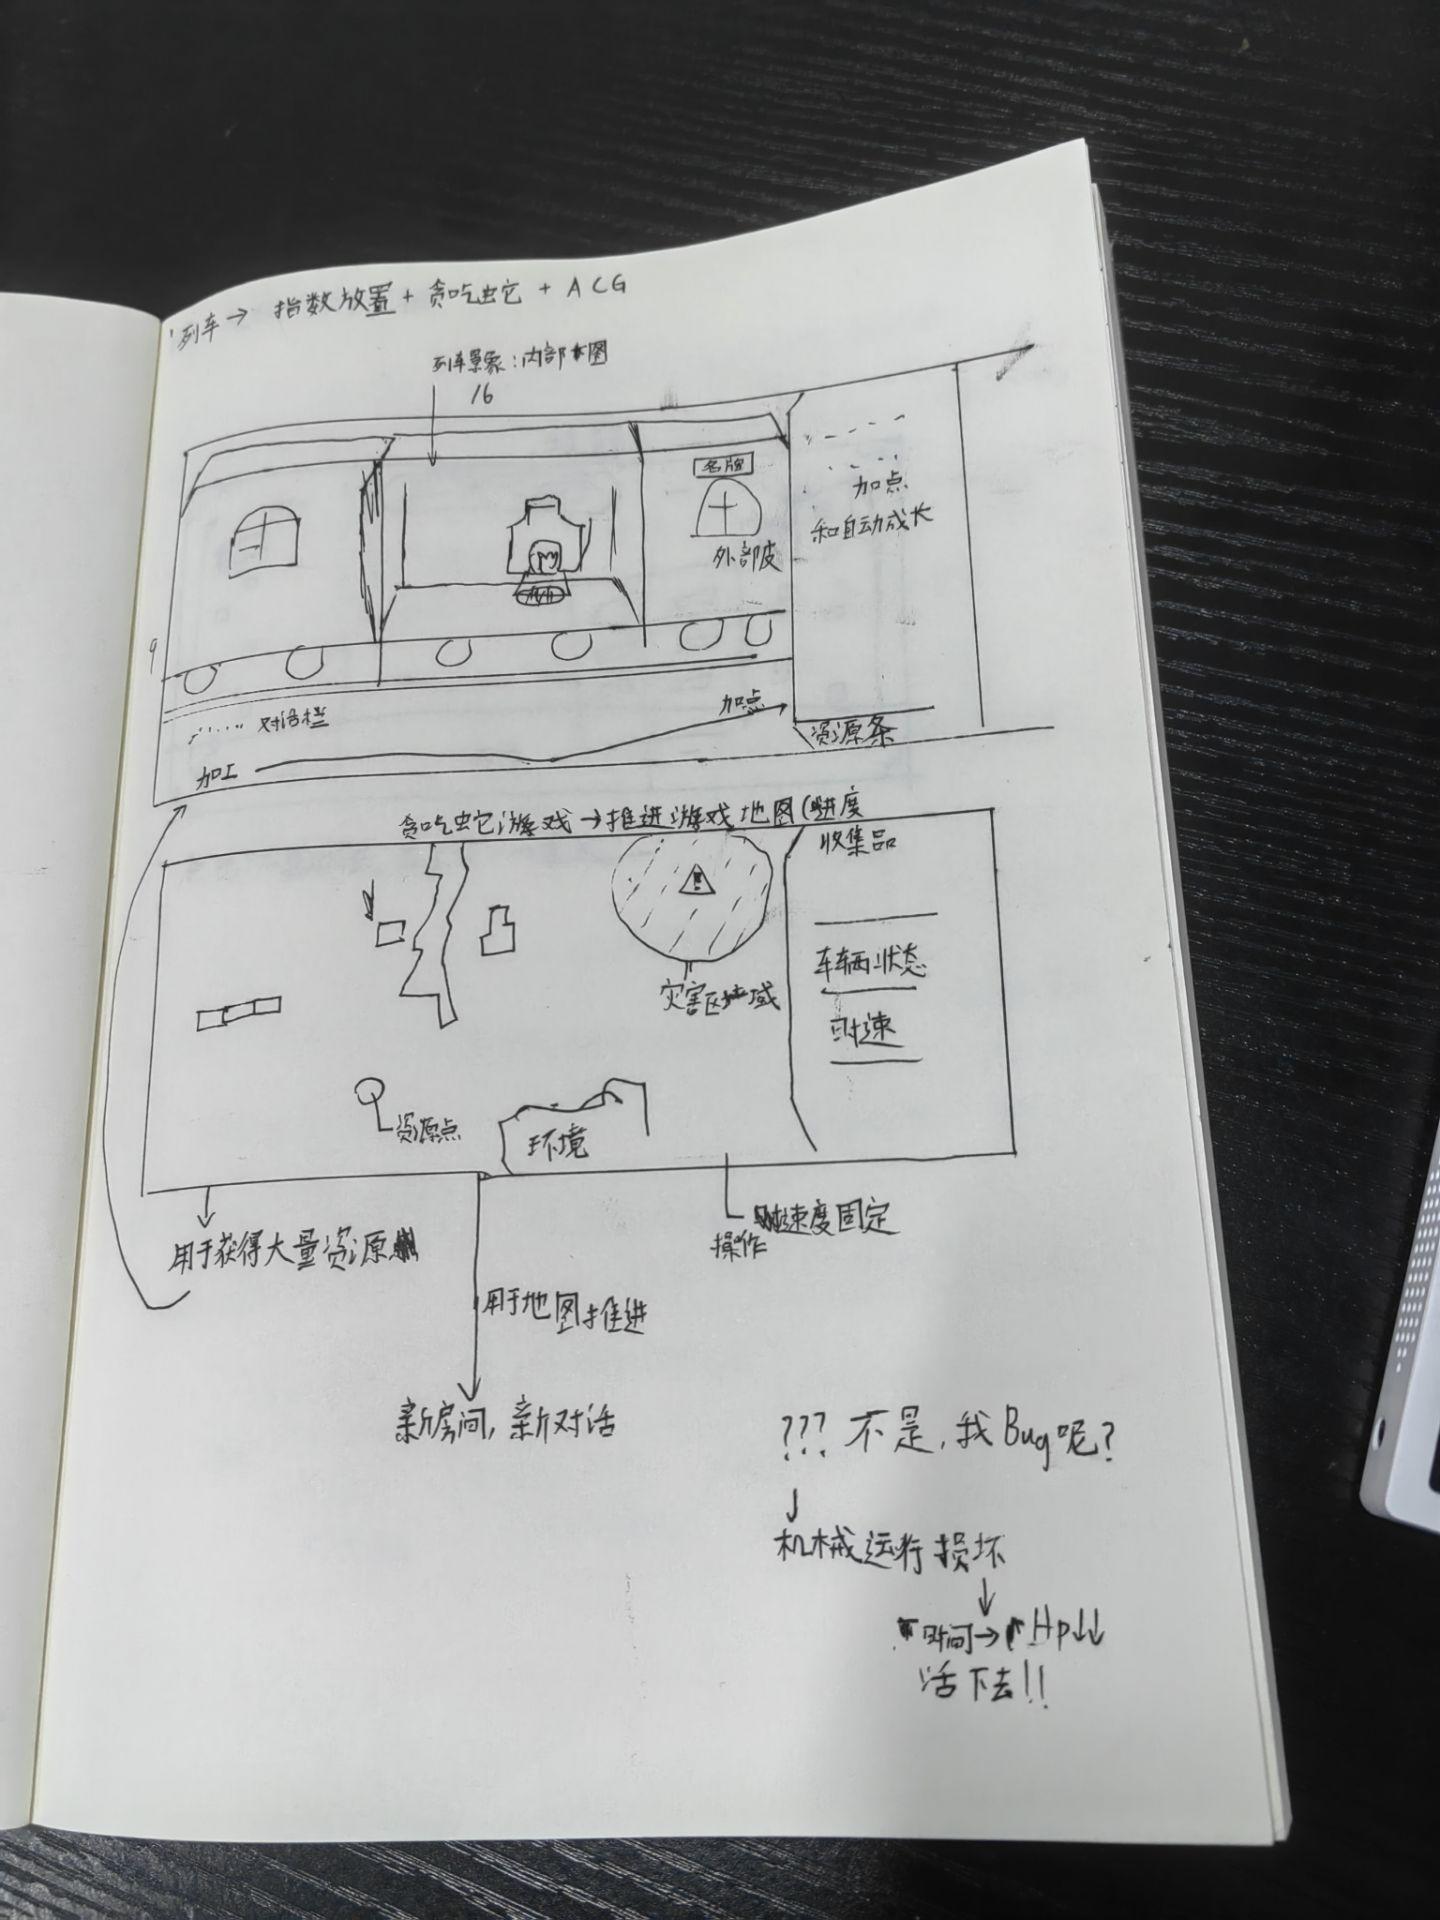 列车→ 指数放置+贪吃蛇+ACG
列车景象:内部图
16
名牌
外部皮
加点
和自动成长
9
对话栏
加点
加工
资源条
贪吃蛇游戏→推进游戏地图(进度
收集品
车辆状态
时速
灾害区域
资源点
环境
用于获得大量资源
速度固定
操作
用于地图推进
新房间,新对话
??? 不是,我Bug呢?
机械运行损坏
时间→Hp↓↓
活下去!!